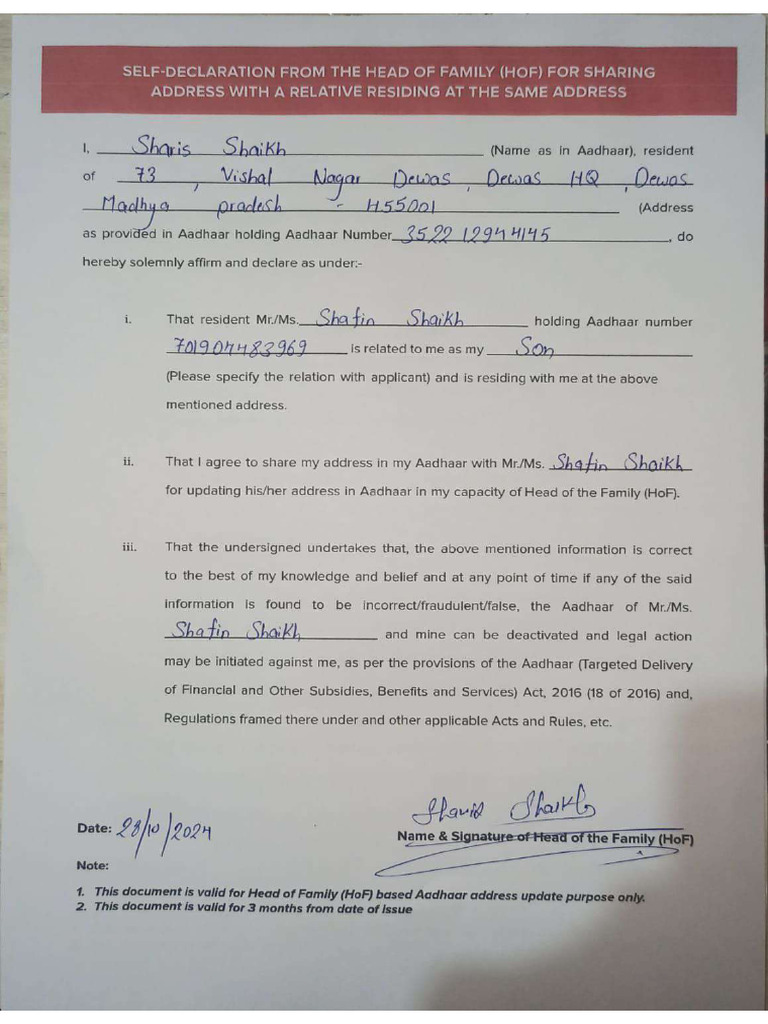 SELF-DECLARATION FROM THE HEAD OF FAMILY (HOF) FOR SHARING
ADDRESS WITH A RELATIVE RESIDING AT THE SAME ADDRESS
I, Sharis Shaikh (Name as in Aadhaar), resident
of 73, Vishal Nagar Dewas, Dewas HQ, Dewas
Madhya pradesh - 455001 (Address
as provided in Aadhaar holding Aadhaar Number 3522 12944145, do
hereby solemnly affirm and declare as under:-
i. That resident Mr./Ms. Shafin Shaikh holding Aadhaar number
701904483969 is related to me as my Son
(Please specify the relation with applicant) and is residing with me at the above
mentioned address.
ii. That I agree to share my address in my Aadhaar with Mr./Ms. Shafin Shaikh
for updating his/her address in Aadhaar in my capacity of Head of the Family (HoF).
iii. That the undersigned undertakes that, the above mentioned information is correct
to the best of my knowledge and belief and at any point of time if any of the said
information is found to be incorrect/fraudulent/false, the Aadhaar of Mr./Ms.
Shafin Shaikh and mine can be deactivated and legal action
may be initiated against me, as per the provisions of the Aadhaar (Targeted Delivery
of Financial and Other Subsidies, Benefits and Services) Act, 2016 (18 of 2016) and,
Regulations framed there under and other applicable Acts and Rules, etc.
Shaikh
Date: 28/10/2024
Name & Signature of Head of the Family (HoF)
Note:
1. This document is valid for Head of Family (HoF) based Aadhaar address update purpose only.
2. This document is valid for 3 months from date of issue